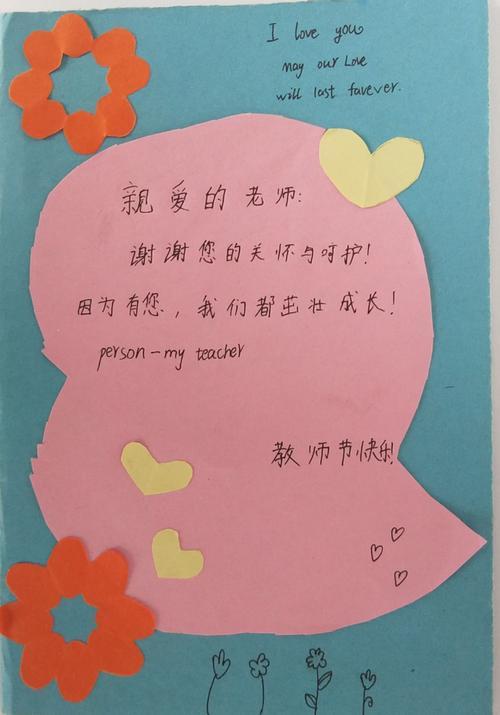 I love you
may our Love
will last favever.
親爱的老师:
谢谢您的关怀与呵护!
因为有您，我们都茁壮成长!
person-my teacher
教师节快乐!